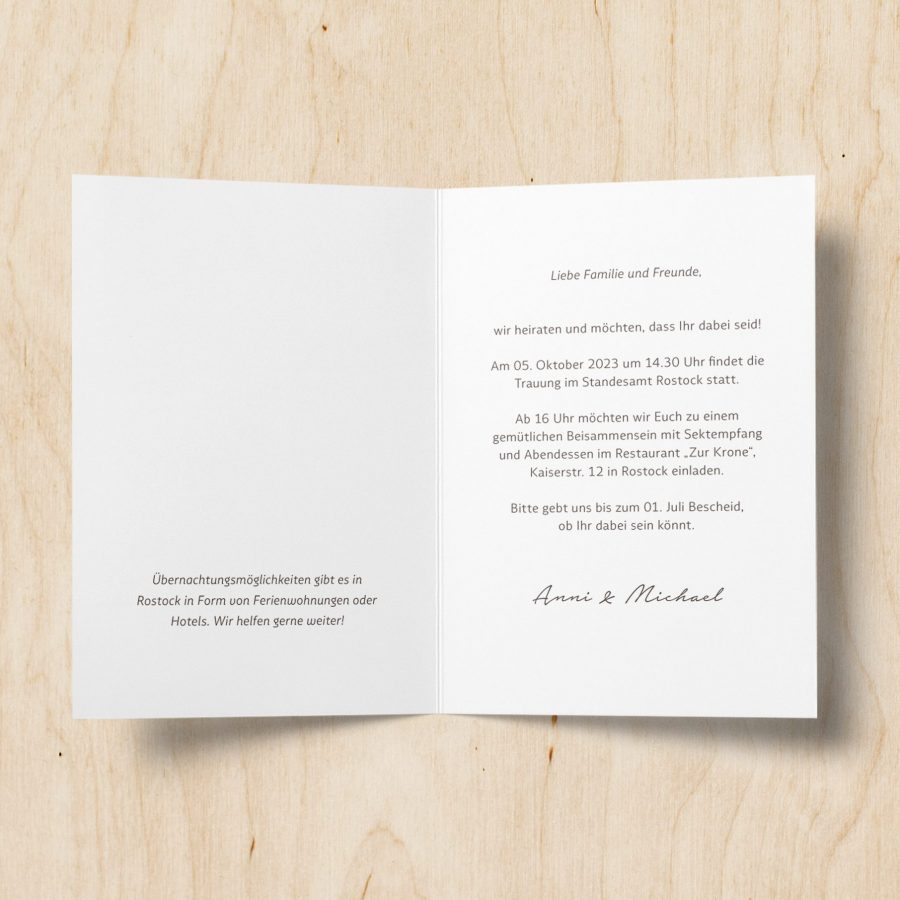 Übernachtungsmöglichkeiten gibt es in
Rostock in Form von Ferienwohnungen oder
Hotels. Wir helfen gerne weiter!
Liebe Familie und Freunde,
wir heiraten und möchten, dass Ihr dabei seid!
Am 05. Oktober 2023 um 14.30 Uhr findet die
Trauung im Standesamt Rostock statt.
Ab 16 Uhr möchten wir Euch zu einem
gemütlichen Beisammensein mit Sektempfang
und Abendessen im Restaurant „Zur Krone“,
Kaiserstr. 12 in Rostock einladen.
Bitte gebt uns bis zum 01. Juli Bescheid,
ob Ihr dabei sein könnt.
Anni & Michael